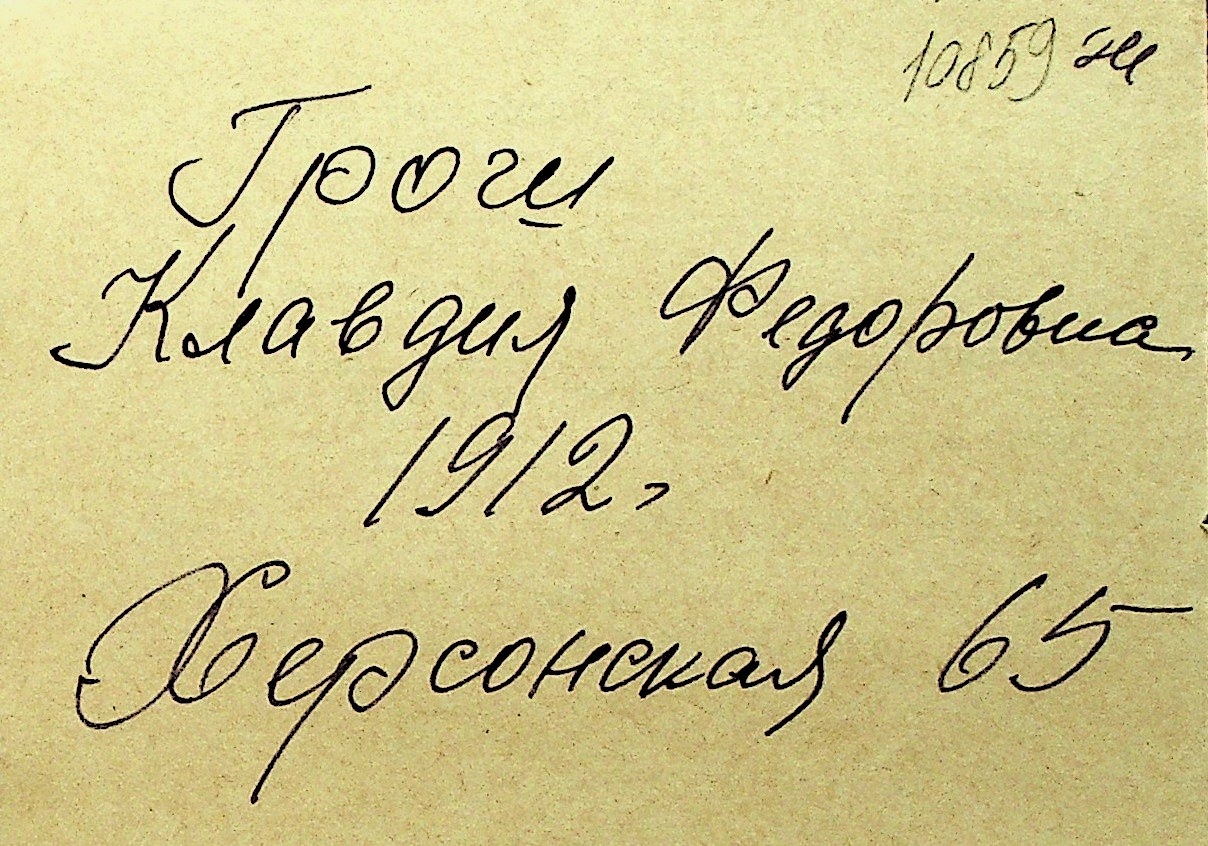 10859 ж
Грош
Клавдия Федоровна
1912г
Херсонская 65